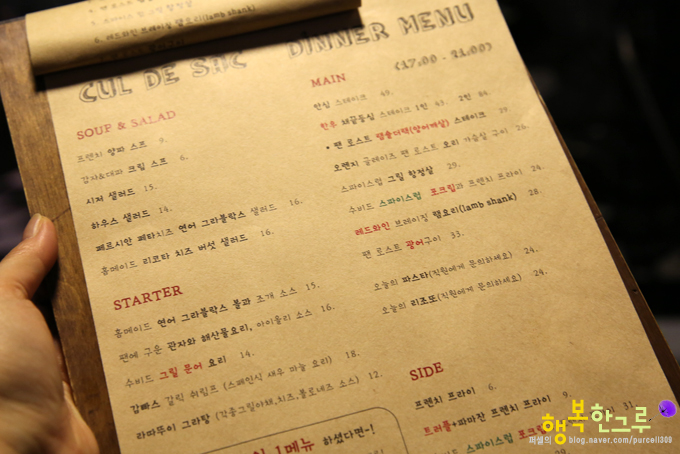 6. 레드와인 브레이징 램요리(lamb shank)
CUL DE SAC DINNER MENU
(17:00 - 21:00)
SOUP & SALAD
프렌치 양파 스프 9.
감자&대파 크림 스프 6.
시저 샐러드 15.
하우스 샐러드 14.
페르시안 페타치즈 연어 그라블락스 샐러드 16.
홈메이드 리코타 치즈 버섯 샐러드 16.
STARTER
홈메이드 연어 그라블락스 롤과 조개 소스 15.
팬에 구운 관자와 해산물요리, 아이올리 소스 16.
수비드 그릴 문어 요리 14.
감바스 갈릭 쉬림프 (스페인식 새우 마늘 요리) 18.
라따뚜이 그라탕 (각종그릴야채,치즈,볼로네즈 소스) 12.
1메뉴 하셨다면~!
MAIN
안심 스테이크 49.
한우 채끝등심 스테이크 1인 43. 2인 84.
• 팬 로스트 램숄더랙(양어깨살) 스테이크 39.
오렌지 글레이즈 팬 로스트 오리 가슴살 구이 26.
스파이스럽 그릴 항정살 29.
수비드 스파이스럽 포크립과 프렌치 프라이 24.
레드와인 브레이징 램요리(lamb shank) 28.
팬 로스트 광어구이 33.
오늘의 파스타(직원에게 문의하세요) 24.
오늘의 리조또(직원에게 문의하세요) 24.
SIDE
프렌치 프라이 6.
트러플+파마잔 프렌치 프라이 9.
수비드 스파이스럽 포크립 31.
행복한그루
퍼셀의 blog.naver.com/purcell309